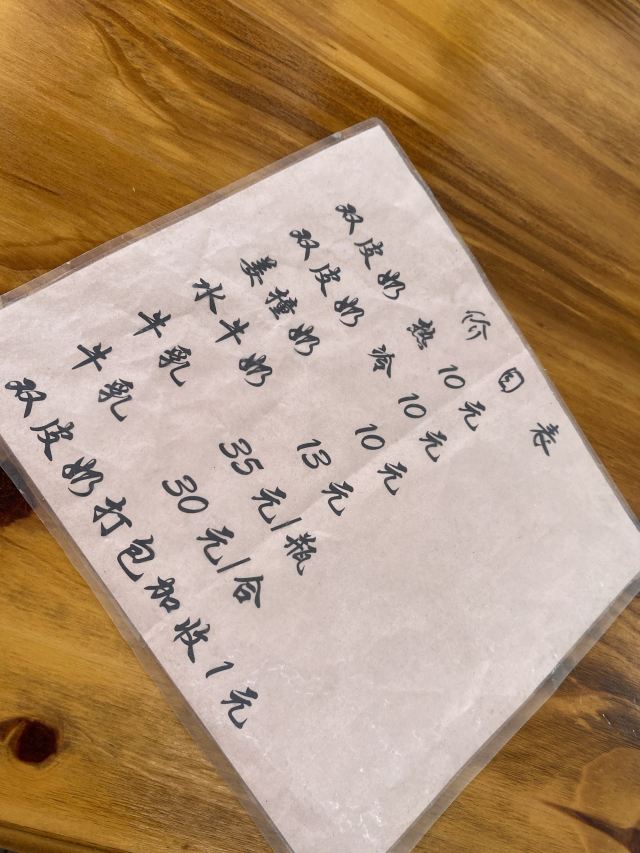 价目表
双皮奶 热 10元
双皮奶 冷 10元
姜撞奶 10元
水牛奶 13元
牛乳 35元/瓶
牛乳 30元/合
双皮奶打包加收1元